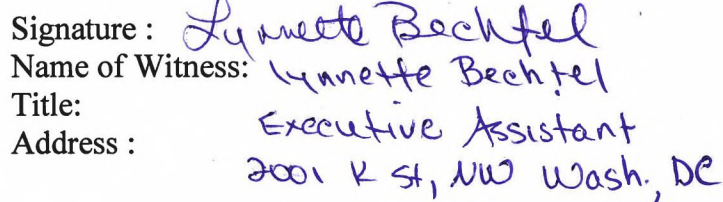 Signature : Lynnette Bechtel
Name of Witness: Lynnette Bechtel
Title: Executive Assistant
Address : 2001 K St, NW Wash., DC